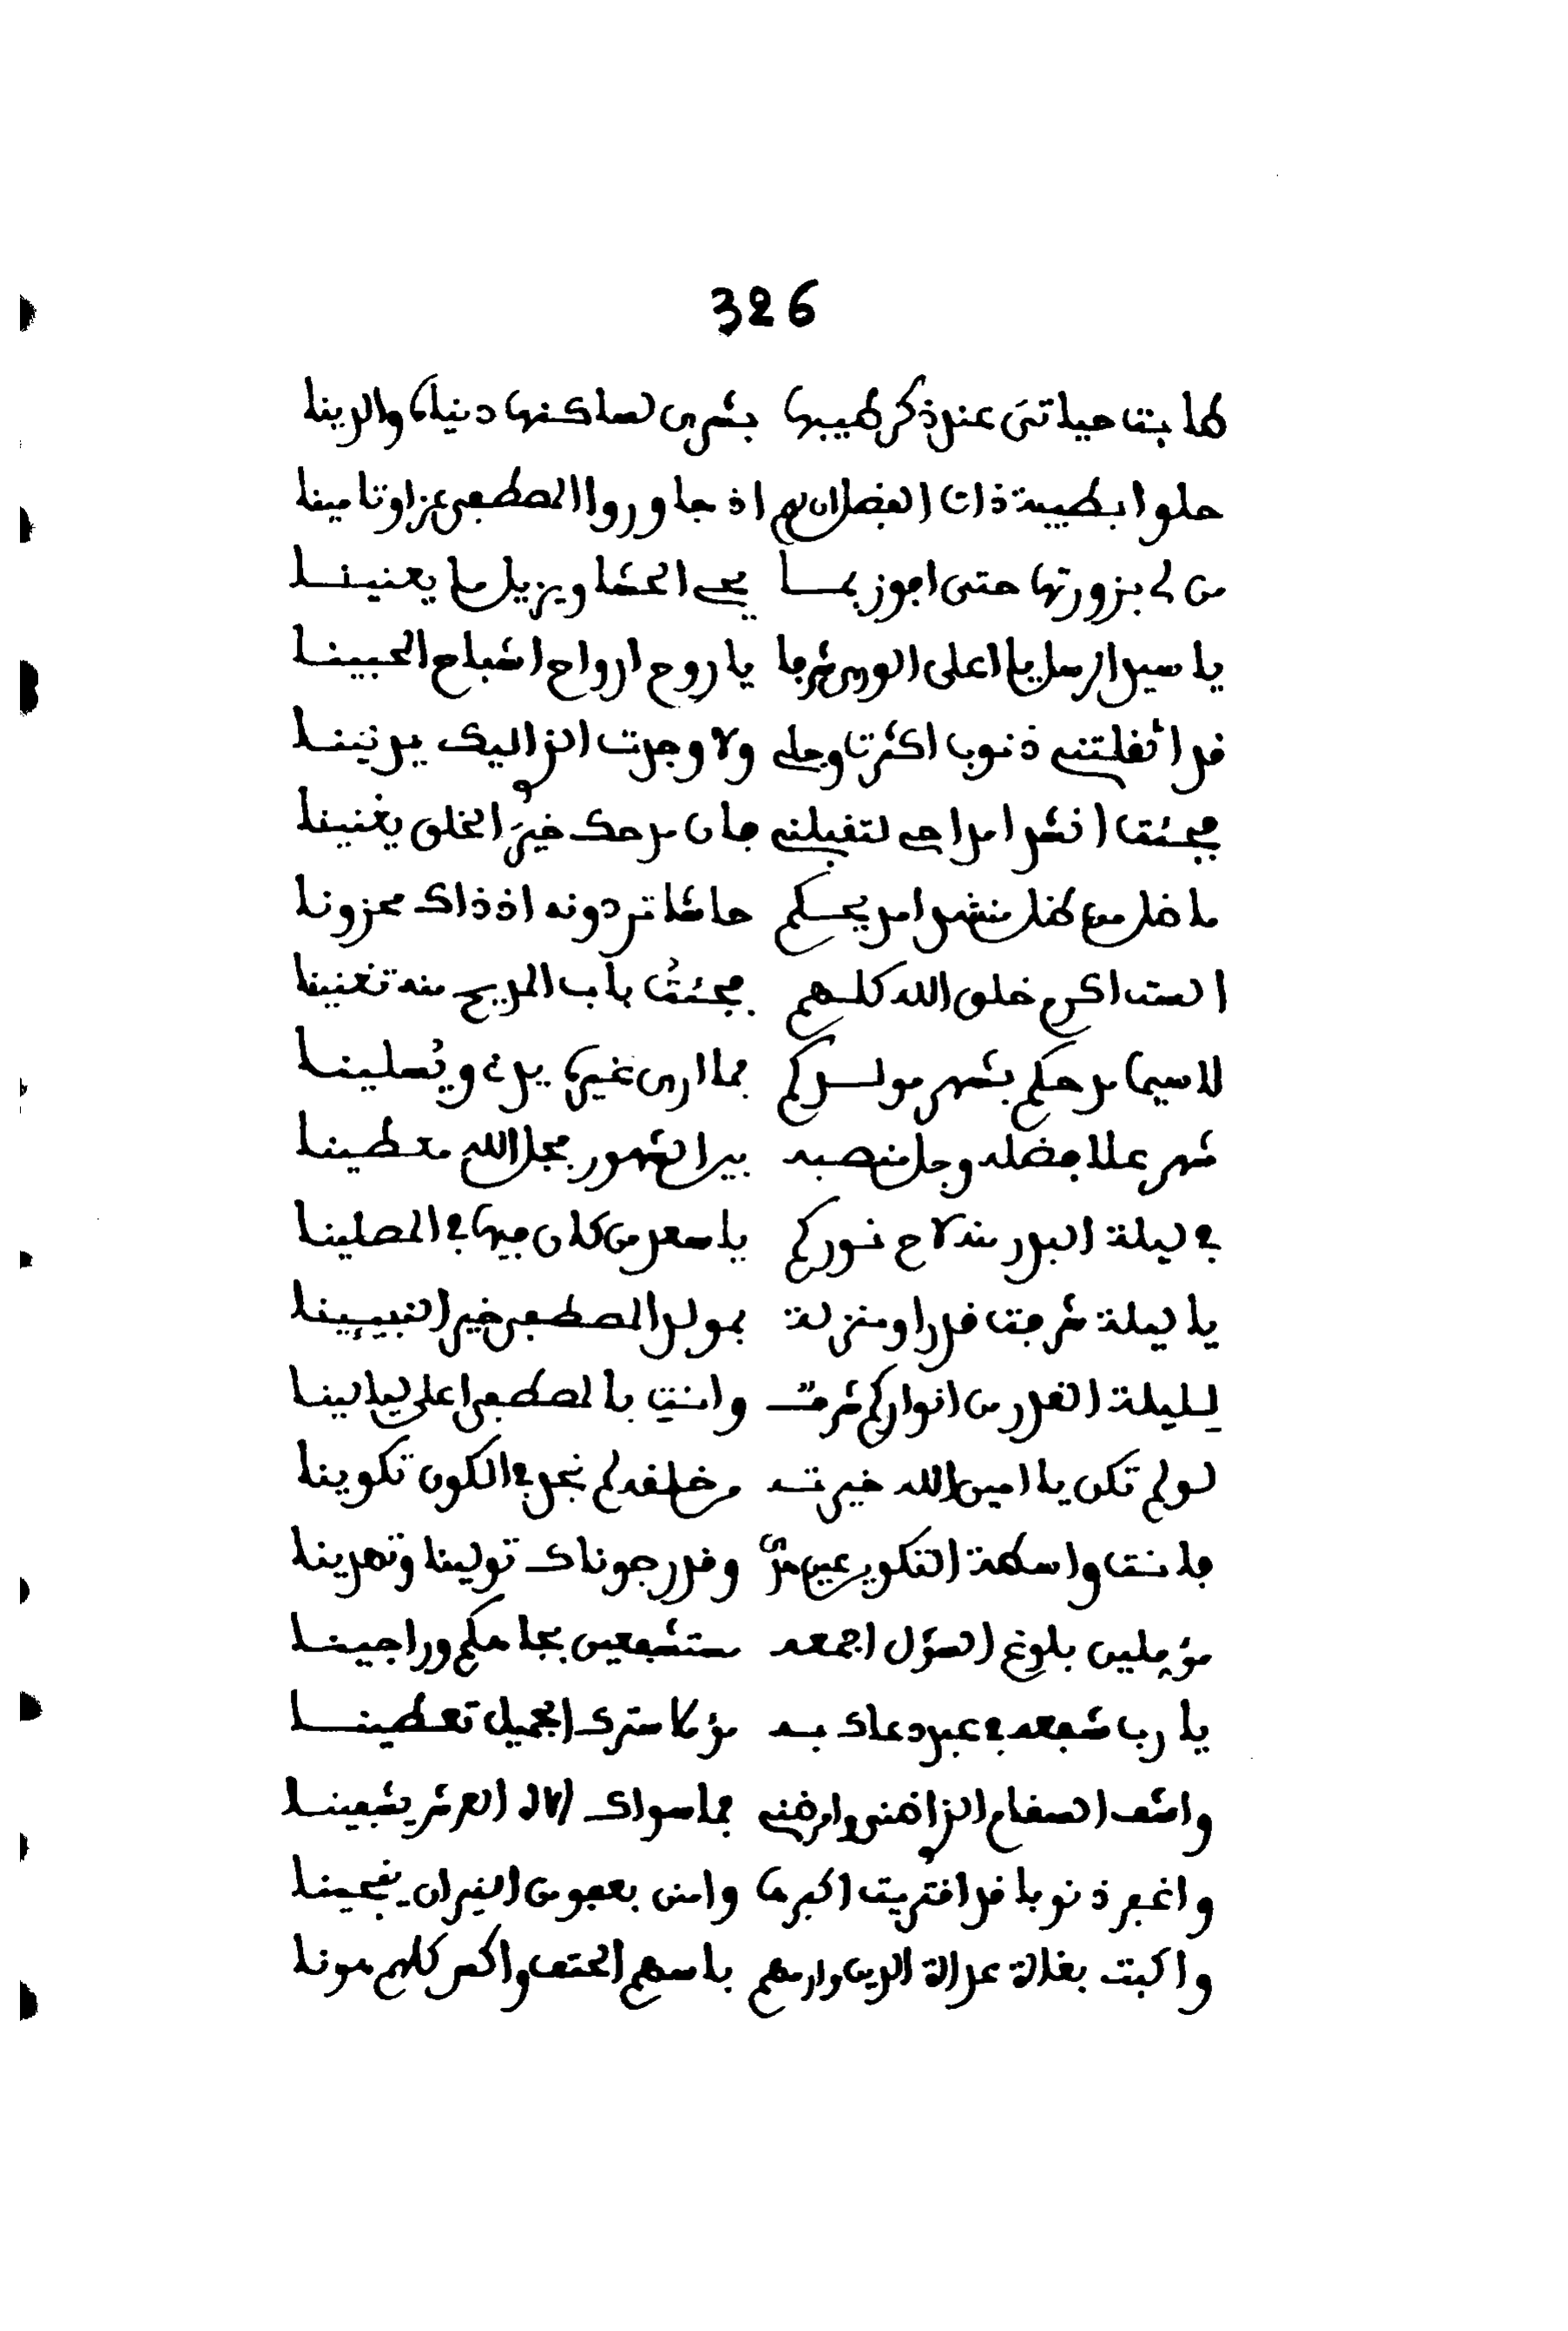 326
طابت حياتي عند ذكر طيبها بشرى لساكنها دنياه والدينا
حلوا بطيبة ذات الفضل ان لهم اذ جاوروا المصطفى عزا وتامينا
من لي بزورتها حتى افوز بما يحيي الحشا ويزيل ما يعنينا
يا سيد الرسل يا اعلى الورى شرفا يا روح ارواح اشباح المحبينا
قد اثقلتني ذنوب اكثرت وجلي ولا وجدت الذ اليك يدنينا
فجئت انشد امداحي لتقبلني فان مدحك خير الخلق يغنينا
ما ضل مع كفل منشد امديحكم حاشا تردونه اذ ذاك محزونا
الست اكرم خلق الله كلهم فجئت باب المديح منه تغنينا
لا سيما مدحكم بشهر مولدكم فما ارى غيره يدني ويسلينا
شهر علا فضله وجل منصبه بيد الشهور فجل الله معطينا
في ليلة البدر منه لاح نوركم يا سعد من كان فيها في المصلينا
يا ليلة شرفت قدرا ومنزلة بمولد المصطفى خير النبيينا
لليلة القدر من انواركم شرفت وانت بالمصطفى اعلى ليالينا
لو لم تكن يا امين الله خيرته من خلقه لم نجد في الكون تكوينا
فانت واسطة التكوين عين مدد وقد رجوناك تولينا وتهدينا
مؤملين بلوغ السؤل اجمعه مستشفعين بجاهكم وراجينا
يا رب شفعه في عبد دعاك به مؤملا سترك الجميل تعطينا
واشف السقام الذ اضنى وامرضني فما سواك الاه العرش يشفينا
واغفر ذنوبا قد اقتريت اكبرها وامنن بعفو من النيران ينجينا
واكبت بغلاة عداة الدين وارمهم باسهم الحتف واكس كلهم هونا